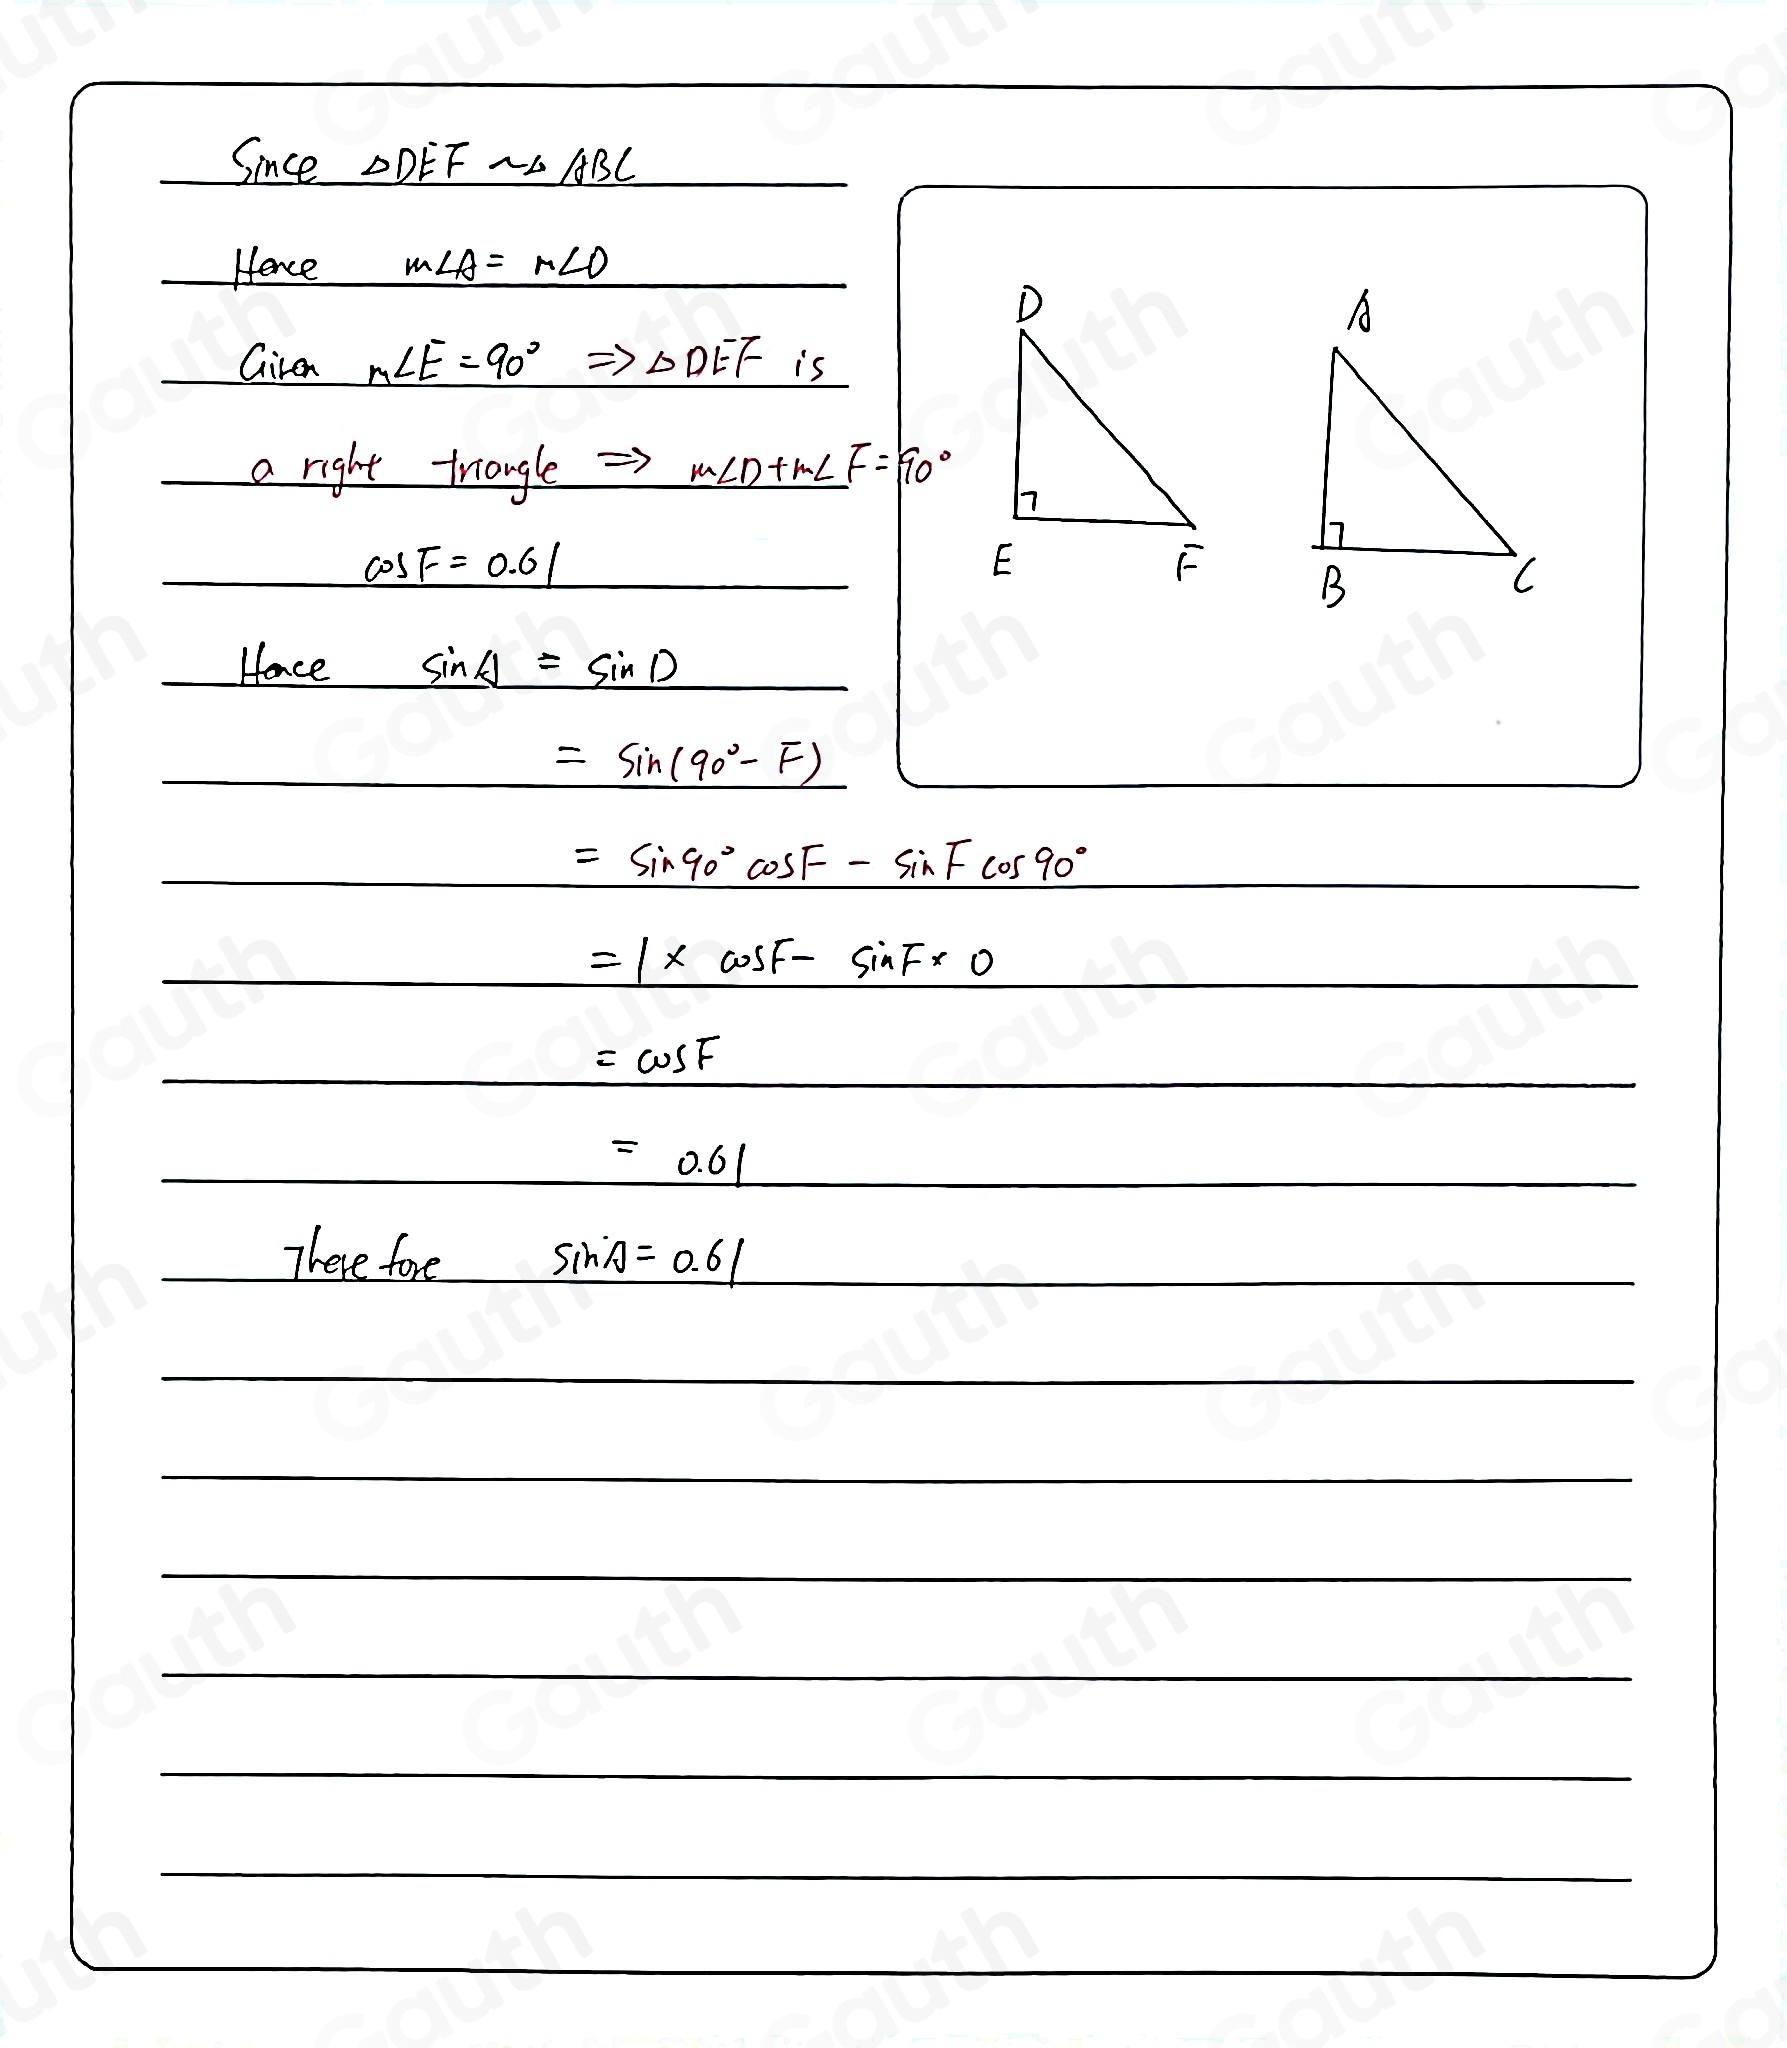 Since △DEF ~△ ABC
Hence m∠A = m∠D
Given m∠E = 90° ⇒ △DEF is
a right triangle ⇒ m∠D + m∠F = 90°
cosF = 0.61
Hence sinA = sinD
= sin(90° - F)
= sin90° cosF - sinF cos90°
= 1 × cosF - sinF × 0
= cosF
= 0.61
Therefore sinA = 0.61
D
E
F
A
B
C
Gauth